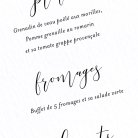 Grenadin de veau poêlé aux morilles,
Pomme grenaille au romarin
et sa tomate grappe provençale
fromages
Buffet de 5 fromages et sa salade verte